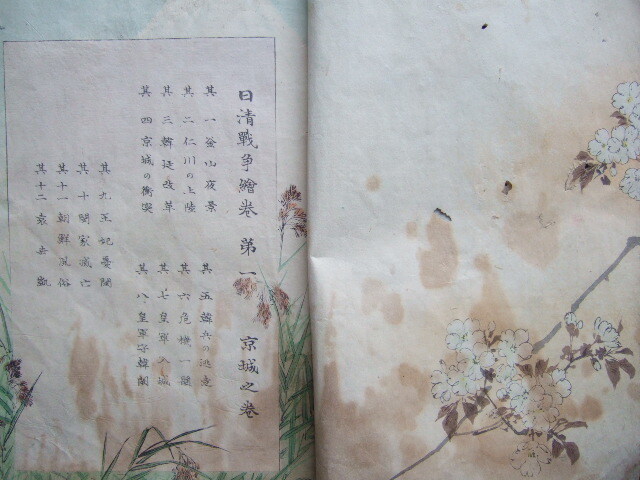 日清戰爭繪卷 第一 京城之卷
其一 釜山夜景
其二 仁川の上陸
其三 韓廷改革
其四 京城の衝突
其五 韓兵の逃走
其六 危機一髪
其七 皇軍入城
其八 皇軍守韓闕
其九 王妃憂悶
其十 閔家滅亡
其十一 朝鮮風俗
其十二 袁世凱